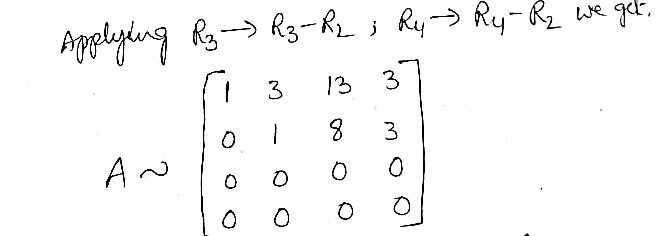 Applying R3 → R3-R2 ; R4 → R4-R2 we get.
1 3 13 3
0 1 8 3
A ~
0 0 0 0
0 0 0 0